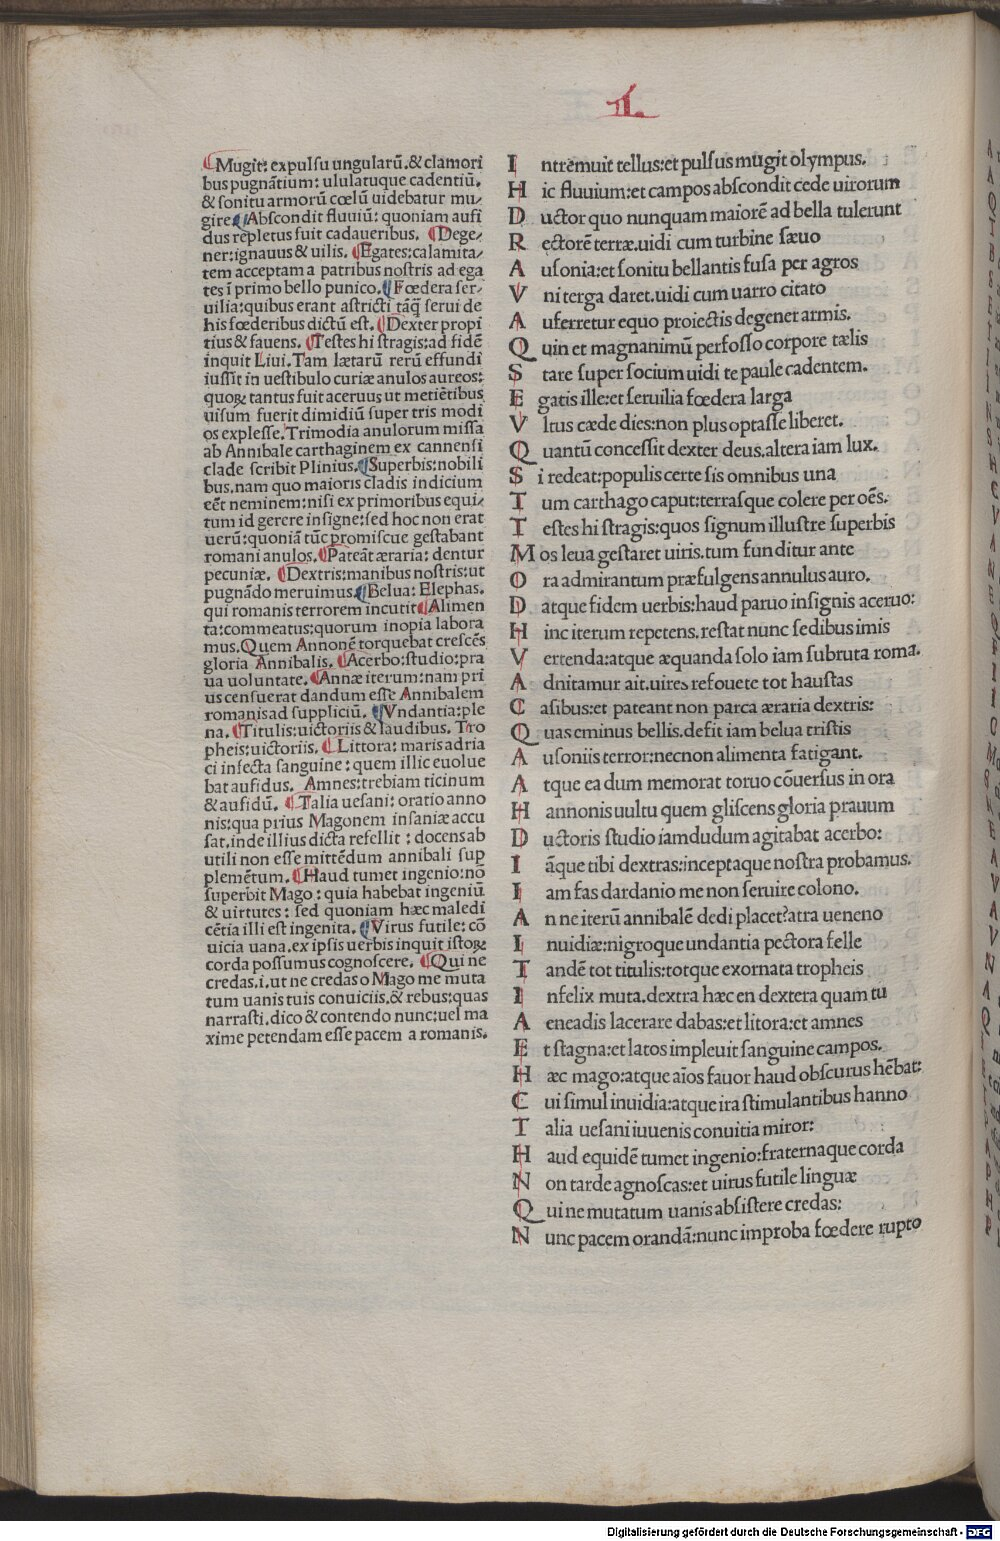 II.
Mugit: expulsu ungularū.&clamori
bus pugnātium: ululatuque cadentiū.
& sonitu armorū cœlū uidebatur mu/
gire Abscondit fluuiū: quoniam aufi
dus repletus fuit cadaueribus. Dege/
ner: ignauus & uilis. Egates: calamita/
tem acceptam a patribus nostris ad ega
tes ī primo bello punico. Fœdera ser/
uilia: quibus erant astricti tāq̄ serui de
his fœderibus dictū est. Dexter propi
tius & fauens. Testes hi stragis: ad fidē
inquit Liui. Tam lætarū rerū effundi
iussit in uestibulo curiæ anulos aureos:
quoꝝ tantus fuit aceruus ut metiētibus
uisum fuerit dimidiū super tris modi
os explesse. Trimodia anulorum missa
ab Annibale carthaginem ex cannensi
clade scribit Plinius. Superbis: nobili
bus. nam quo maioris cladis indicium
eēt neminem: nisi ex primoribus equi/
tum id gerere insigne: sed hoc non erat
uerū: quoniā tūc promiscue gestabant
romani anulos. Pateāt æraria: dentur
pecuniæ. Dextris: manibus nostris: ut
pugnādo meruimus. Belua: Elephas.
qui romanis terrorem incutit Alimen
ta: commeatus: quorum inopia labora
mus. Quem Annonē torquebat crescēs
gloria Annibalis. Acerbo: studio: pra
ua uoluntate. Annæ iterum: nam pri
us censuerat dandum esse Annibalem
romanis ad suppliciū. Vndantia: ple
na. Titulis: uictoriis & laudibus. Tro
pheis: uictoriis. Littora: maris adria
ci infecta sanguine: quem illic euolue
bat aufidus. Amnes: trebiam ticinum
& aufidū. Talia uesani: oratio anno
nis: qua prius Magonem insaniæ accu
sat. inde illius dicta refellit: docens ab
utili non esse mittēdum annibali sup
plemētum. Haud tumet ingenio: nō
superbit Mago: quia habebat ingeniū
& uirtutes: sed quoniam hæc maledi
cētia illi est ingenita. Virus futile: cō
uicia uana. ex ipsis uerbis inquit istoꝝ
corda possumus cognoscere. Qui ne
credas. i. ut ne credas o Mago me muta
tum uanis tuis conuiciis. & rebus: quas
narrasti. dico & contendo nunc: uel ma
xime petendam esse pacem a romanis.
I ntremuit tellus: et pulsus mugit olympus.
H ic fluuium: et campos abscondit cede uirorum
D uctor quo nunquam maiorē ad bella tulerunt
R ectorē terræ. uidi cum turbine sæuo
A usonia: et sonitu bellantis fusa per agros
V ni terga daret. uidi cum uarro citato
A uferretur equo proiectis degener armis.
Q uin et magnanimū perfosso corpore tælis
S tare super socium uidi te paule cadentem.
E gatis ille: et seruilia fœdera larga
V ltus cæde dies: non plus optasse liberet.
Q uantū concessit dexter deus. altera iam lux.
S i redeat: populis certe sis omnibus una
T um carthago caput: terrasque colere per oēs.
T estes hi stragis: quos signum illustre superbis
M os leua gestaret uiris. tum funditur ante
O ra admirantum præfulgens annulus auro.
D atque fidem uerbis: haud paruo insignis aceruo:
H inc iterum repetens. restat nunc sedibus imis
V ertenda: atque æquanda solo iam subruta roma.
A dnitamur ait. uires refouete tot haustas
C asibus: et pateant non parca æraria dextris:
Q uas eminus bellis. defit iam belua tristis
A usoniis terror: necnon alimenta fatigant.
A tque ea dum memorat toruo cōuersus in ora
H annonis uultu quem gliscens gloria prauum
D uctoris studio iamdudum agitabat acerbo:
I āque tibi dextras: inceptaque nostra probamus.
I am fas dardanio me non seruire colono.
A n ne iterū annibalē dedi placet? atra ueneno
I nuidiæ: nigroque undantia pectora felle
T andē tot titulis: totque exornata tropheis
I nfelix muta. dextra hæc en dextera quam tu
A eneadis lacerare dabas: et litora: et amnes
E t stagna: et latos impleuit sanguine campos.
H æc mago: atque aīos fauor haud obscurus hēbat:
C ui simul inuidia: atque ira stimulantibus hanno
T alia uesani iuuenis conuitia miror:
H aud equidē tumet ingenio: fraternaque corda
N on tarde agnoscas: et uirus futile linguæ
Q ui ne mutatum uanis absistere credas:
N unc pacem orandā: nunc improba fœdere rupto
Digitalisierung gefördert durch die Deutsche Forschungsgemeinschaft - DFG